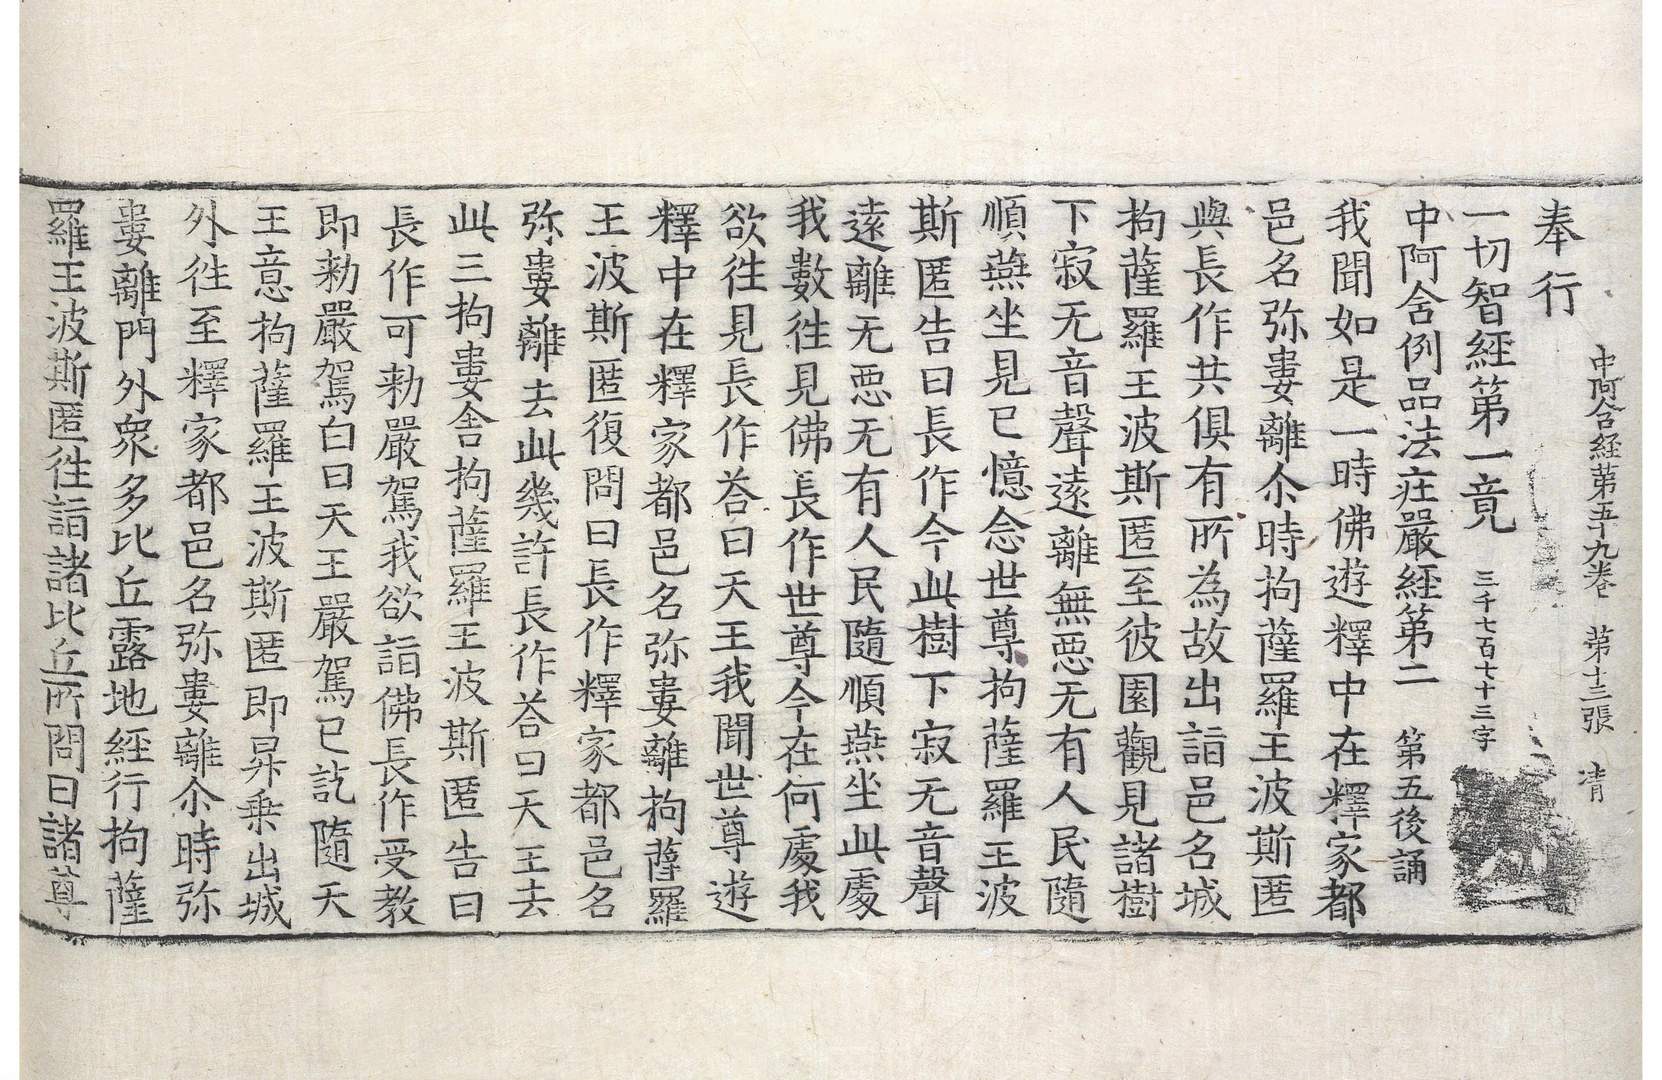 中阿含経苐五十九卷　苐十三張　凊
奉行
一切智經第一竟　三千七百七十三字
中阿含例品法莊嚴經第二　第五後誦
我聞如是一時佛遊釋中在釋家都
邑名弥婁離尒時拘薩羅王波斯匿
與長作共俱有所為故出詣邑名城
拘薩羅王波斯匿至彼園觀見諸樹
下寂无音聲遠離無惡无有人民隨
順燕坐見已憶念世尊拘薩羅王波
斯匿告曰長作今此樹下寂无音聲
遠離无惡无有人民隨順燕坐此處
我數往見佛長作世尊今在何處我
欲往見長作荅曰天王我聞世尊遊
釋中在釋家都邑名弥婁離拘薩羅
王波斯匿復問曰長作釋家都邑名
弥婁離去此幾許長作荅曰天王去
此三拘婁舍拘薩羅王波斯匿告曰
長作可勑嚴駕我欲詣佛長作受教
即勑嚴駕白曰天王嚴駕已訖隨天
王意拘薩羅王波斯匿即昇乗出城
外往至釋家都邑名弥婁離尒時弥
婁離門外衆多比丘露地經行拘薩
羅王波斯匿往詣諸比丘所問曰諸尊